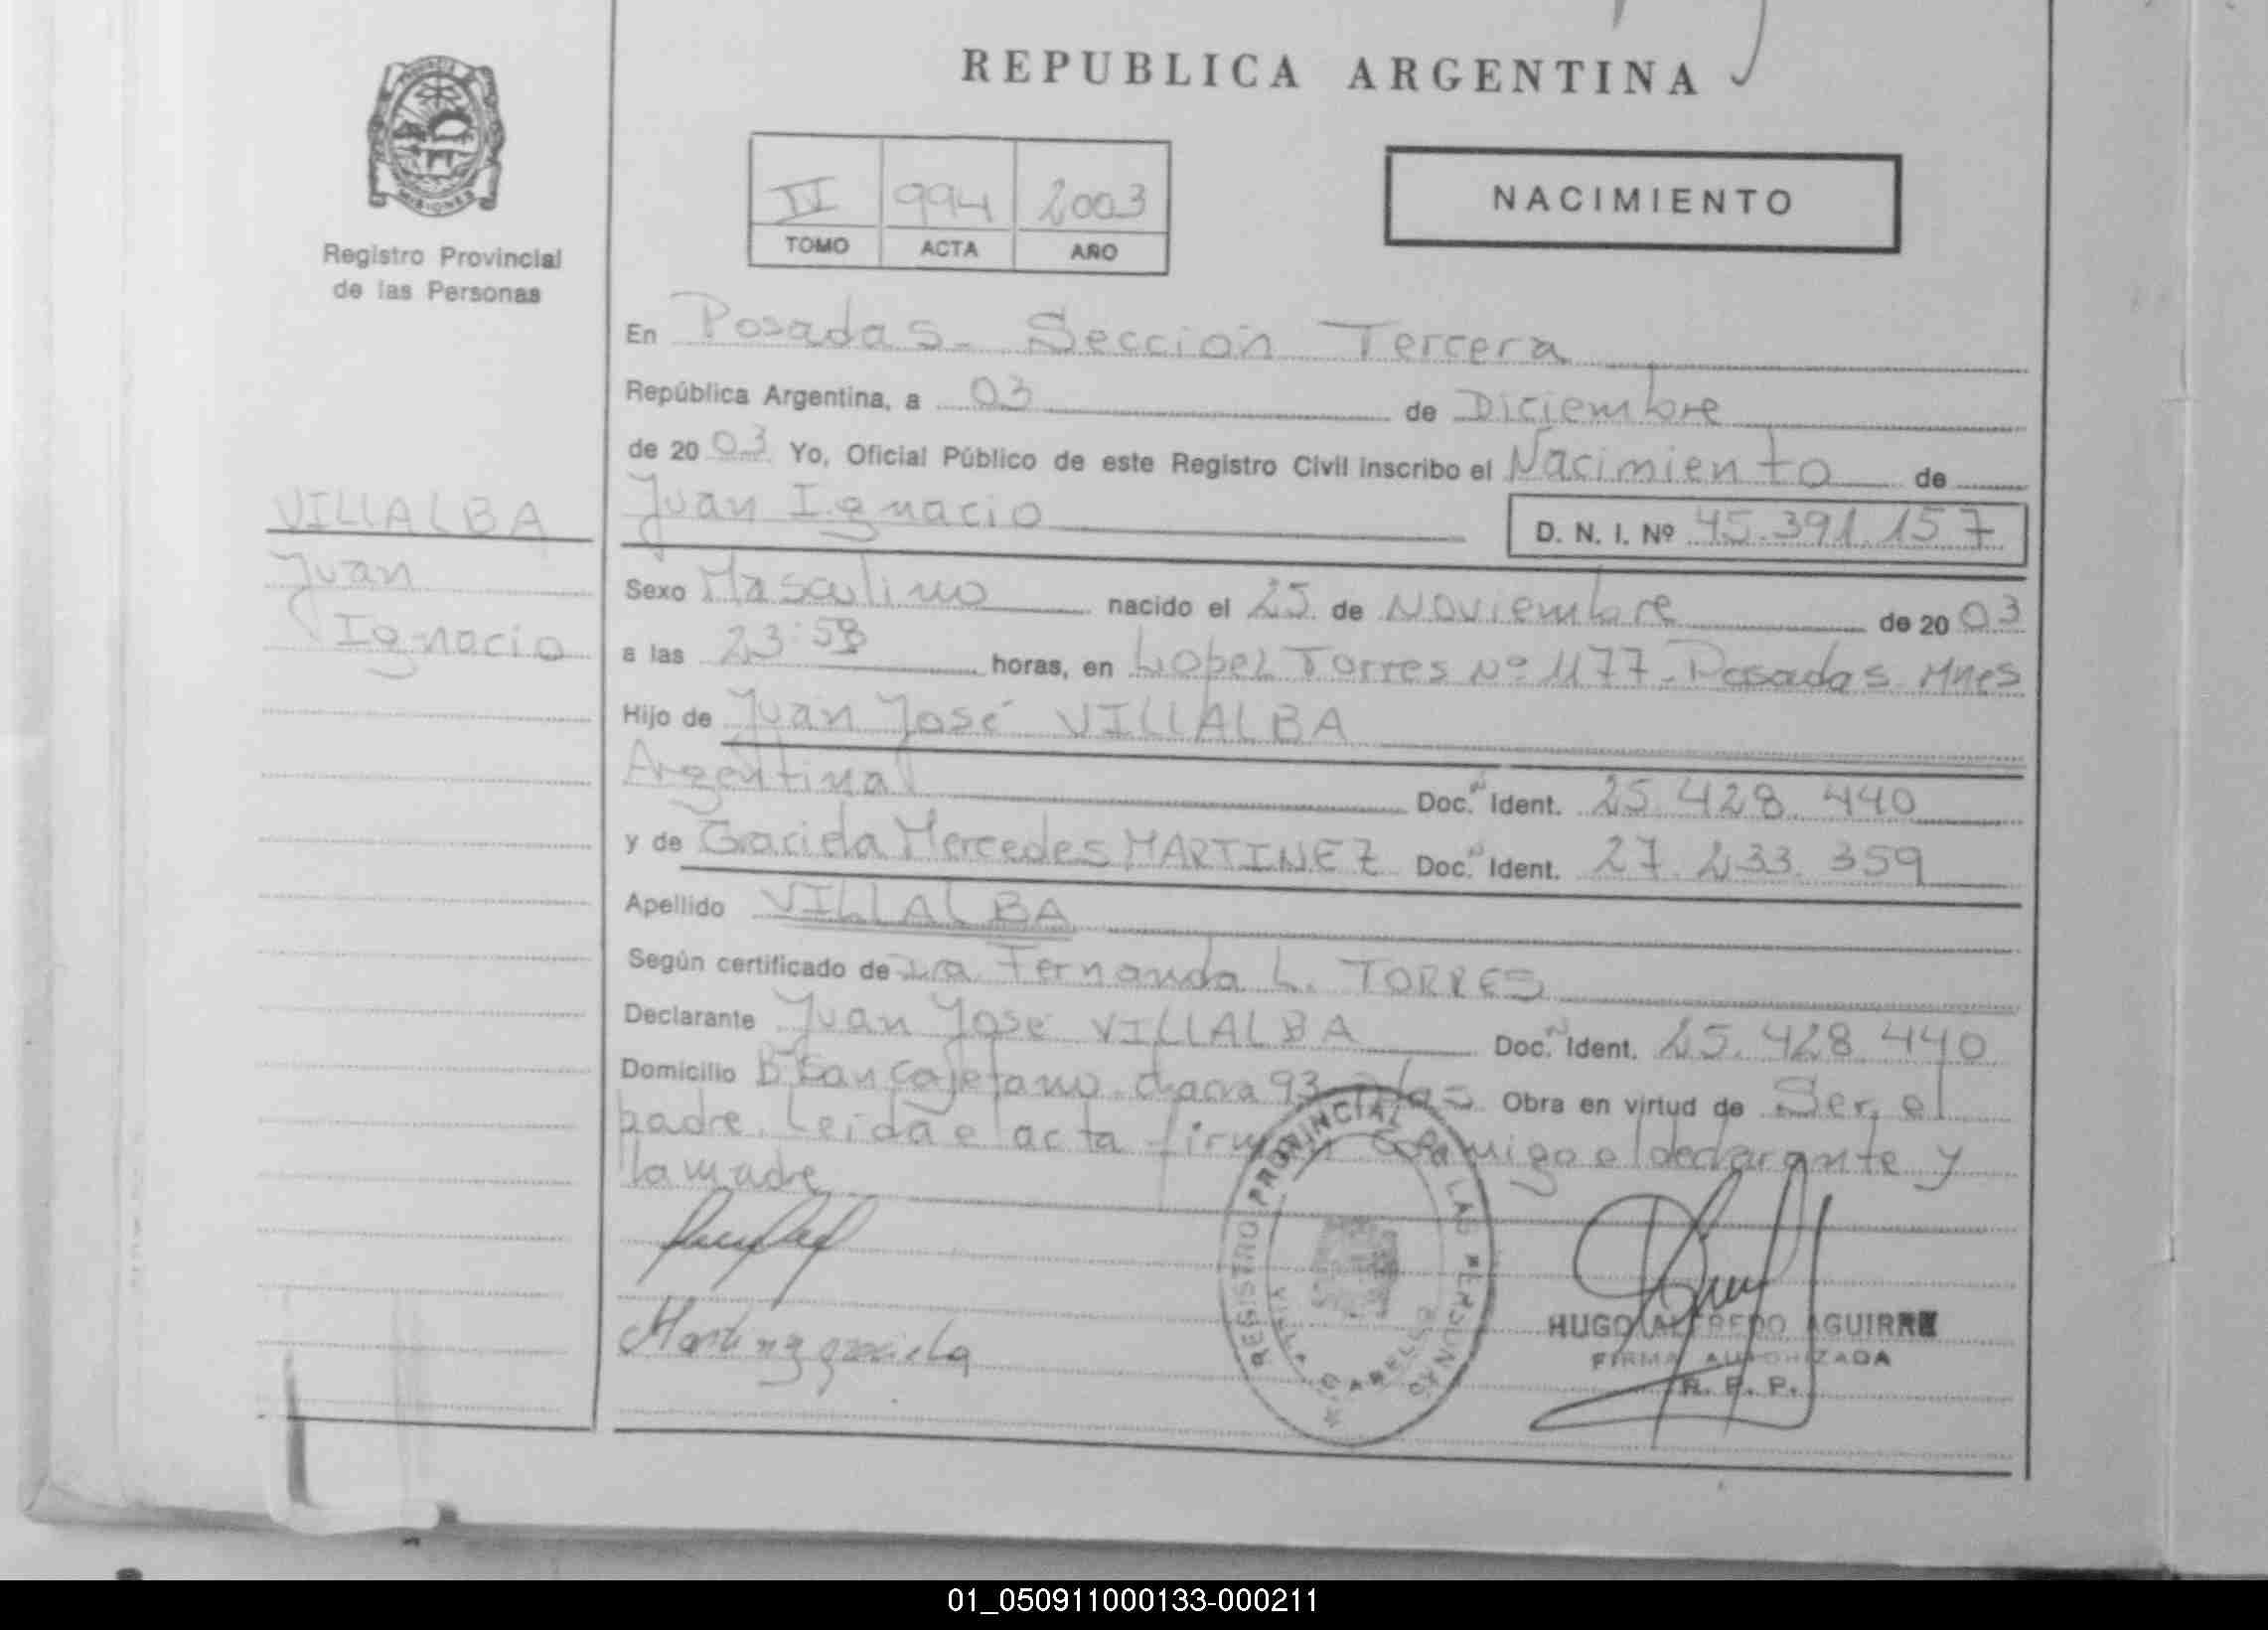 REPUBLICA ARGENTINA
PROVINCIA
MISIONES
Registro Provincial
de las Personas
II 994 2003
TOMO ACTA AÑO
NACIMIENTO
En Posadas - Sección Tercera
República Argentina, a 03 de Diciembre
de 2003 Yo, Oficial Público de este Registro Civil inscribo el Nacimiento de
VILLALBA
Juan
Ignacio
Juan Ignacio D. N. I. Nº 45.391.157
Sexo Masculino nacido el 25 de Noviembre de 2003
a las 23:58 horas, en Lopez Torres Nº 1177 - Posadas Mnes
Hijo de Juan José VILLALBA
Argentina Doc. Ident. 25.428.440
y de Graciela Mercedes MARTINEZ Doc. Ident. 27.233.359
Apellido VILLALBA
Según certificado de Dra Fernanda L. TORRES
Declarante Juan José VILLALBA Doc. Ident. 25.428.440
Domicilio Bº San Cajetano chacra 93 Pdas Obra en virtud de Ser el
padre. Leida el acta firman conmigo el declarante y
la madre
REGISTRO PROVINCIAL DE LAS PERSONAS
Martinez graciela
HUGO ALFREDO AGUIRRE
FIRMA AUTORIZADA
R. P. P.
01_050911000133-000211